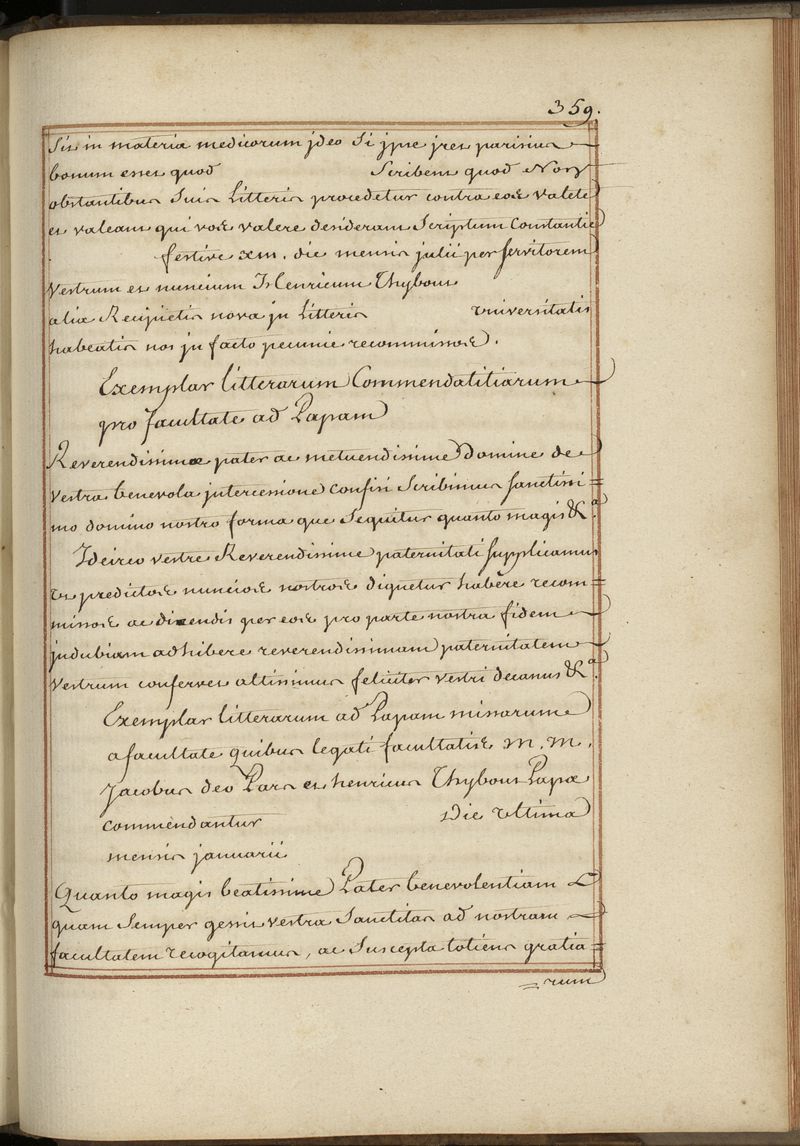 359.
Sis in materia medicorum jdeo Si jpse jres parisius
bonum esses quod Scribem quod Nory
obstantibus Suis Litteris procedetur contra eos valete
es valeam qui vos valere desideram Scriptum Constantie
festive xm. die mensis julii per servitorem
Vestrum es nuncium Henricum Thybous
alia Recipietis nova jn Litteris Universitatis
habeatis nos jn facto pecunie recommissos.
Exemplar litterarum Commendatitiarum
pro facultate ad Papam
Reverendissimæ pater ac metuendissime Domine de
Vestra benevola jntercessione confisi Scribimus sanctissi=
mo domino nostro forma que Sequitur quanto magis &ª.
Jdcirco vestre Reverendissime paternitati supplicamus
es predictos nuncios nostros dignetur habere recom=
missos ac dicendis per eos pro parte nostra fidem
jndubiam adhibere reverendissimam paternitatem
Vestrum conserves altissimus feliciter vestri decanus &ª.
Exemplar litterarum ad Papam missarum
a facultate quibus legati facultatis M. M.
Jacobus deo Pars es henricus Thybous Papæ
commendantur Die Ultima
mensis januarii
Quanto magis beatissime Pater benevolentiam
quam Semper gessis vestra Sanctitas ad nostram
facultatem recogitamus, ac Suscepta totiens gratia=
=rum